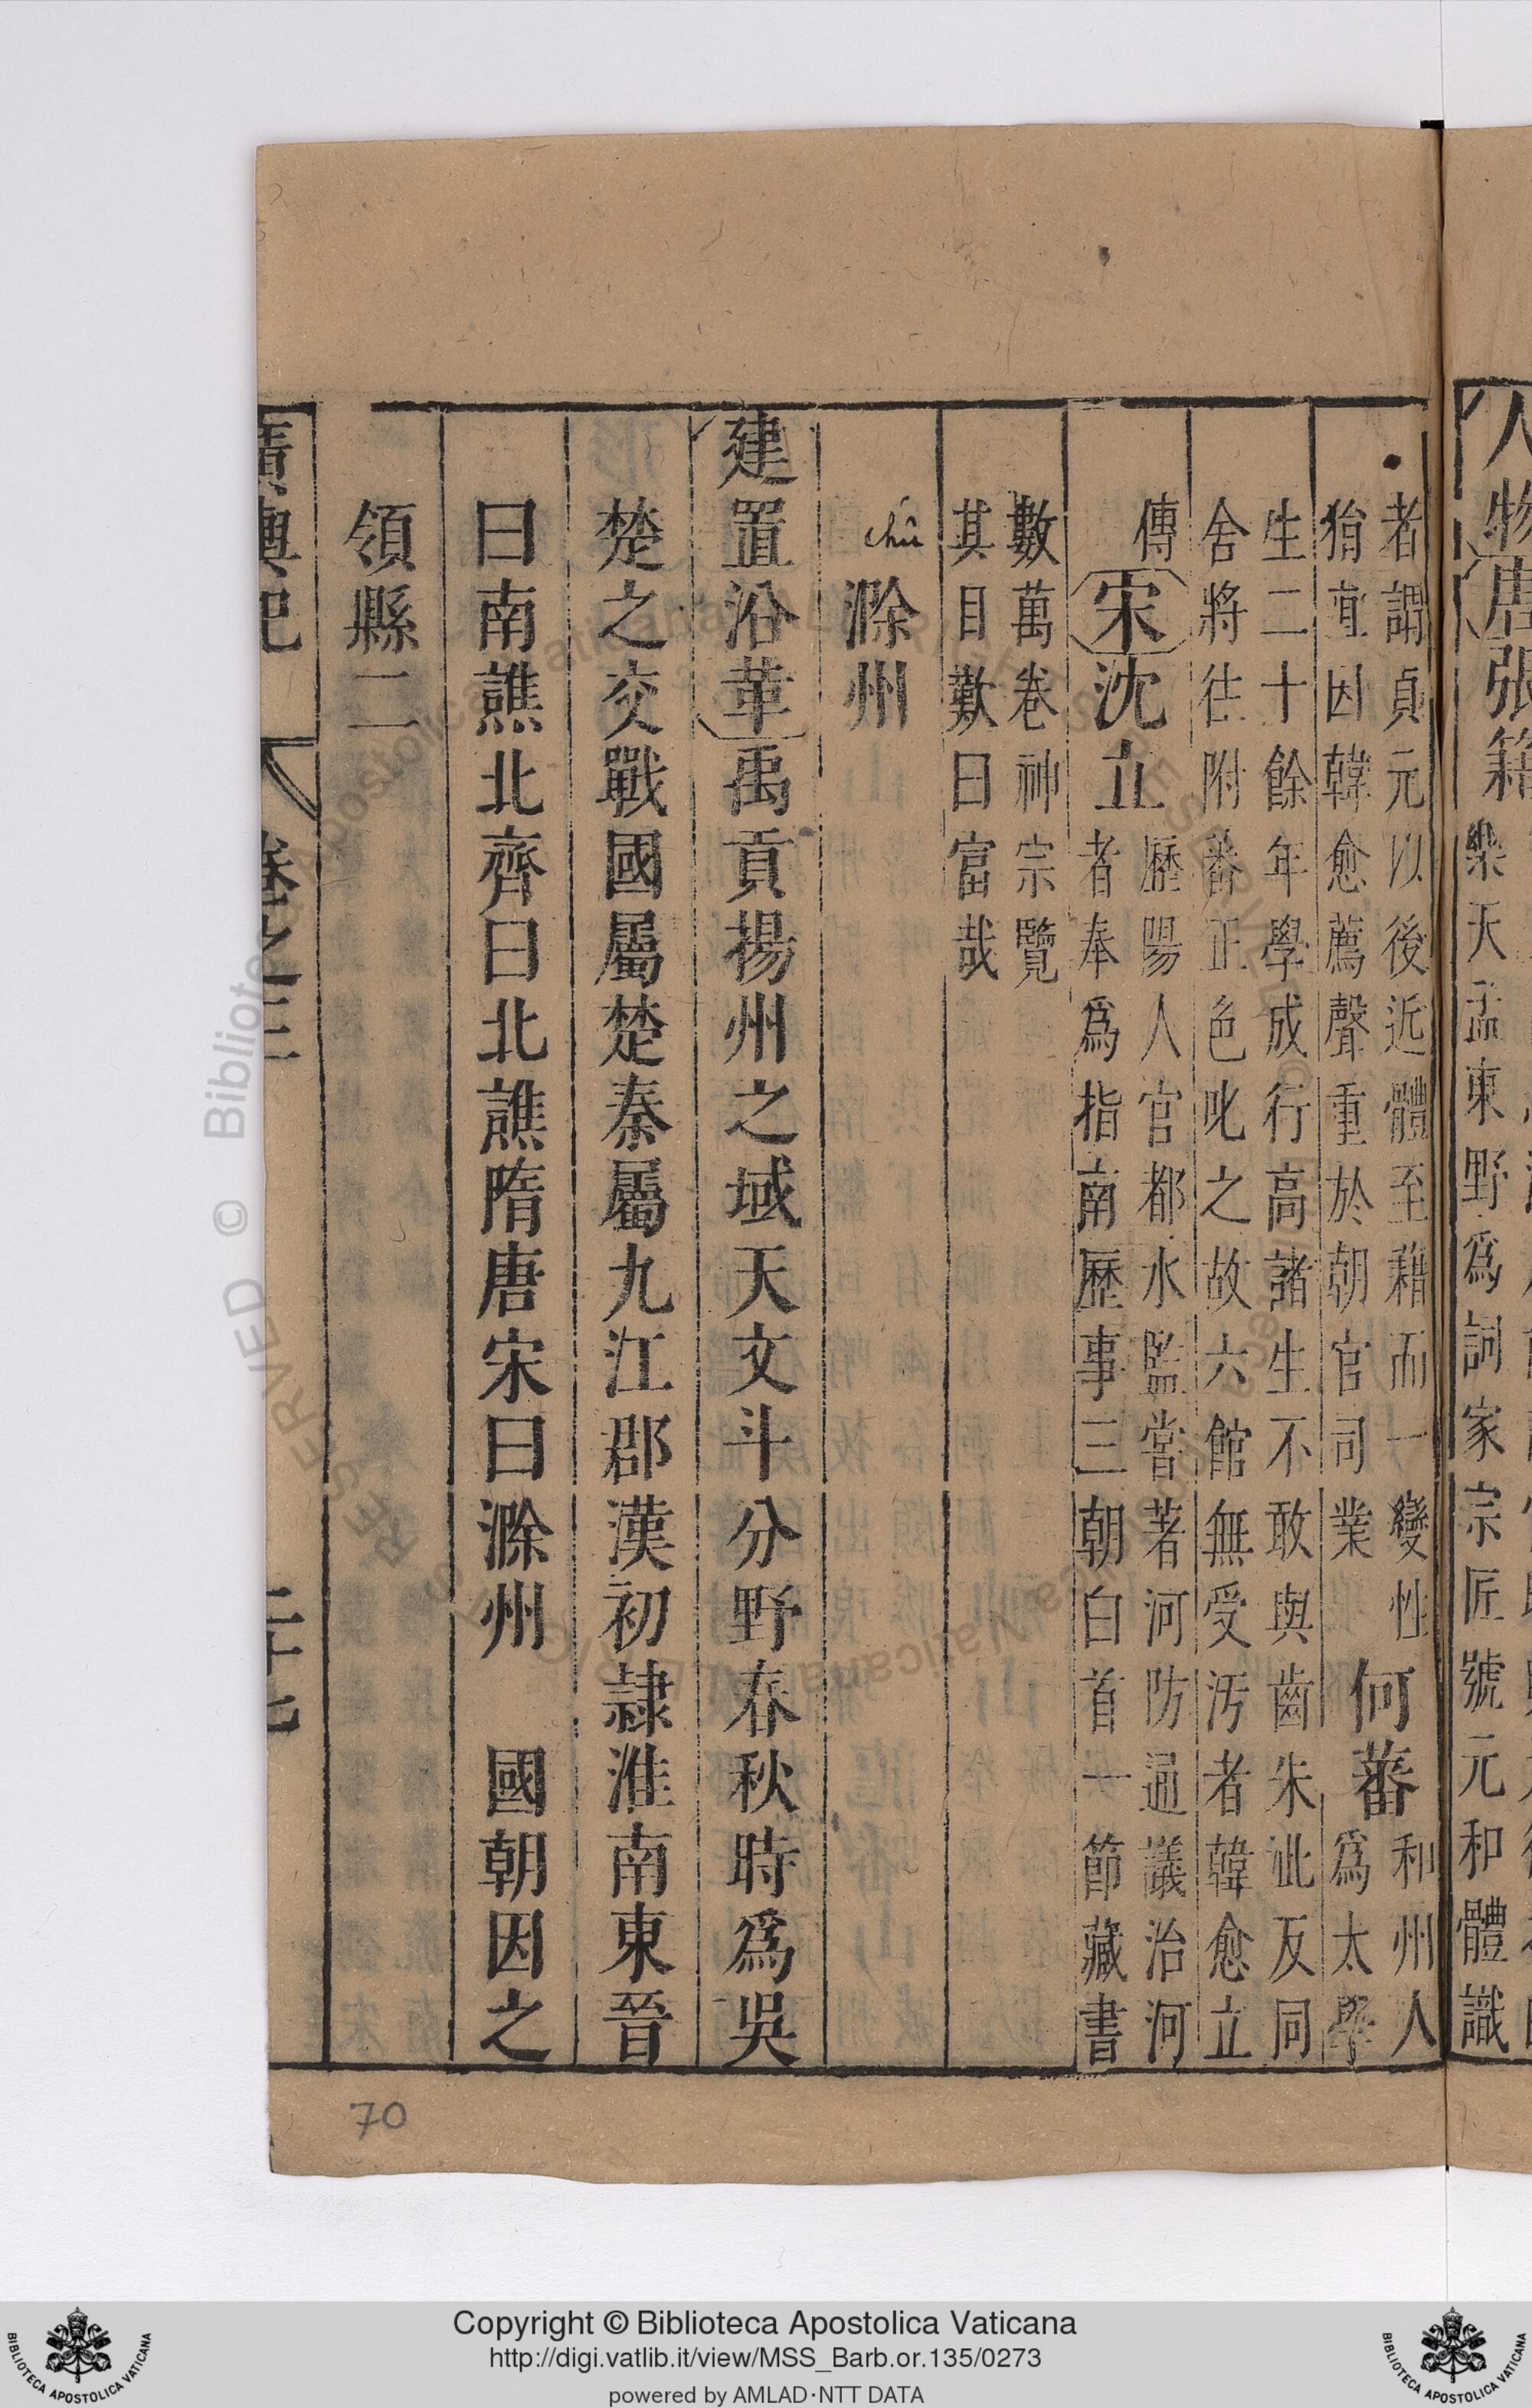 人物唐張籍
樂天孟東野爲詞家宗匠號元和體識
者謂貞元以後近體至藉而一變性
狷直因韓愈薦聲重於朝官司業
何蕃
和州人
爲太學
生二十餘年學成行高諸生不敢與齒朱泚反同
舍將往附蕃正色叱之故六館無受汚者韓愈立
傳
宋沈立
歷陽人官都水監嘗著河防通議治河
者奉爲指南歷事三朝白首一節藏書
數萬卷神宗覽
其目歎曰富哉
chû
滁州
建置沿革禹貢揚州之域天文斗分野春秋時爲吳
楚之交戰國屬楚秦屬九江郡漢初隷淮南東晉
曰南譙北齊曰北譙隋唐宋曰滁州　國朝因之
領縣二
廣輿記　卷之三　二十七
70
Copyright © Biblioteca Apostolica Vaticana
http://digi.vatlib.it/view/MSS_Barb.or.135/0273
powered by AMLAD·NTT DATA
BIBLIOTECA APOSTOLICA VATICANA
BIBLIOTECA APOSTOLICA VATICANA